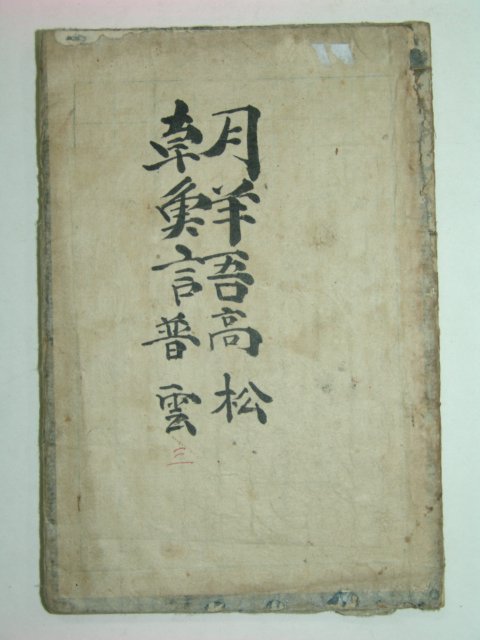 朝鮮語
高普
松雲
三